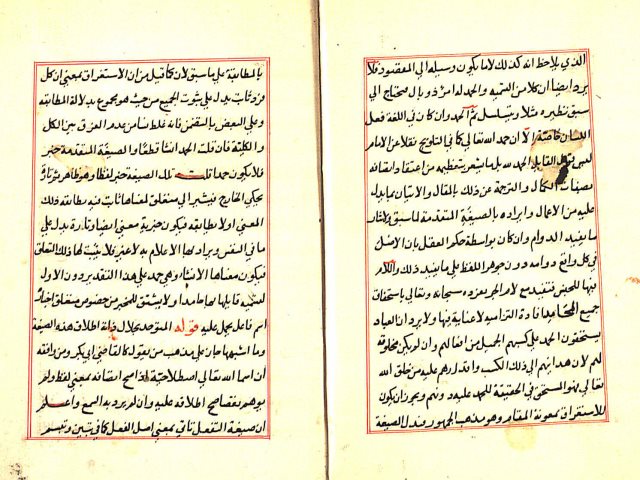 الذي يلاحظ انه كذلك لا ما يكون وسيلة الي المقصود فلا
يرد ايضا ان كلا من التسمية والحمدلة امر ذو بال محتاج الي
سبق نظيره مثلا ويتسلسل ثم الحمد وان كان في اللغة فعل
اللسان خاصة الا ان حمد الله تعالي كما في التلويح نقلا عن الامام
ليس قول القايل الحمد لله بل ما يشعر بتعظيمه من اعتقاد اتصافه
بصفات الكمال والترجمة عن ذلك بالمقال والاتيان بما يدل
عليه من الاعمال وايراده بالصيغة المتقدمة لما سبق ولايثار
ما يفيد الدوام وان كان بواسطة حكم العقل بان الاصل
في كل واقع دوامه دون جوهر اللفظ علي ما يفيد ذلك واللام
فيها للجنس فتفيد مع لام الجر تفرده سبحانه وتعالي باستحقاق
جميع المحامد افادة التزامية لا عناية فيها ولا يرد ان العباد
يستحقون الحمد علي كسبهم الجميل من افعالهم وان لم يكن مخلوقة
لهم لان هدايتهم الي ذلك الكسب واقدارهم عليه من خلق الله
تعالي فهو المستحق في الحقيقة للحمد عليه دونهم ويجوز ان يكون
للاستغراق بمعونة المقام وهو مذهب الجمهور وتدل الصيغة
بالمطابقة علي ما سبق لان كما قيل من ان الاستغراق بمعني ان كل
فرد ثابت يدل علي ثبوت الجميع من حيث هو مجموع بدلالة المطابقة
وعلي البعض بالتضمن فانه غلط نشا من عدم الفرق بين الكل
والكلية فان قلت الحمد انشا قطعا والصيغة المتقدمة خبر
فلا يكون حمدا قلت تلك الصيغة خبر لفظا وهو ظاهر ثم تارة
يحكي الخارج فيشير الي متعلق لمعناها ثابت فيه يطابقه ذلك
المعني او لا يطابقه فيكون خبرية معني ايضا وتارة يدل علي
ما في النفس ويراد بها الاعلام به لا غير فلا يثبت لها ذلك التعلق
فيكون معناها الانشا وهي حمد علي هذا التقدير دون الاول
قايلها حامدا ولا يشتق للمخبر من خصوص متعلق اخباره
اسم فاعل يحمل عليه قوله المتوحد بجلال ذاته اطلاق هذه الصيغة
وما اشبهها جار علي مذهب من يقول كالقاضي ابي بكر ومن وافقه
ان اسما الله تعالي اصطلاحية فاذا صح اتصافه بمعني لفظ ولم
يوهم نقصا صح اطلاقه عليه وان لم يرد به السمع واعلم
ان صيغة التفعل تاتي بمعني اصل الفعل كما في تبين وتبسم